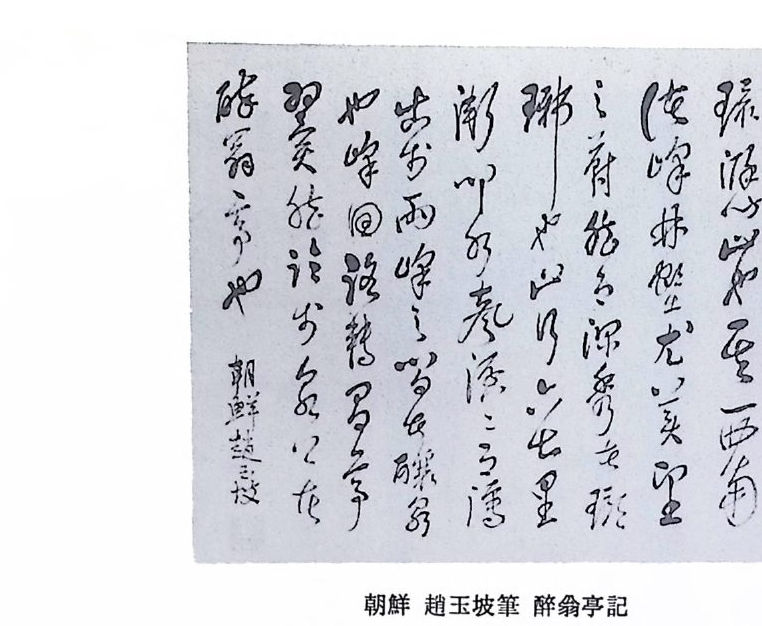 環滁皆山也其西南
諸峰林壑尤美望
之蔚然而深秀者瑯
琊也山行六七里
漸聞水聲潺潺而瀉
出於兩峰之間者釀泉
也峰回路轉有亭
翼然臨於泉上者
醉翁亭也
朝鮮趙玉坡
朝鮮 趙玉坡筆 醉翁亭記